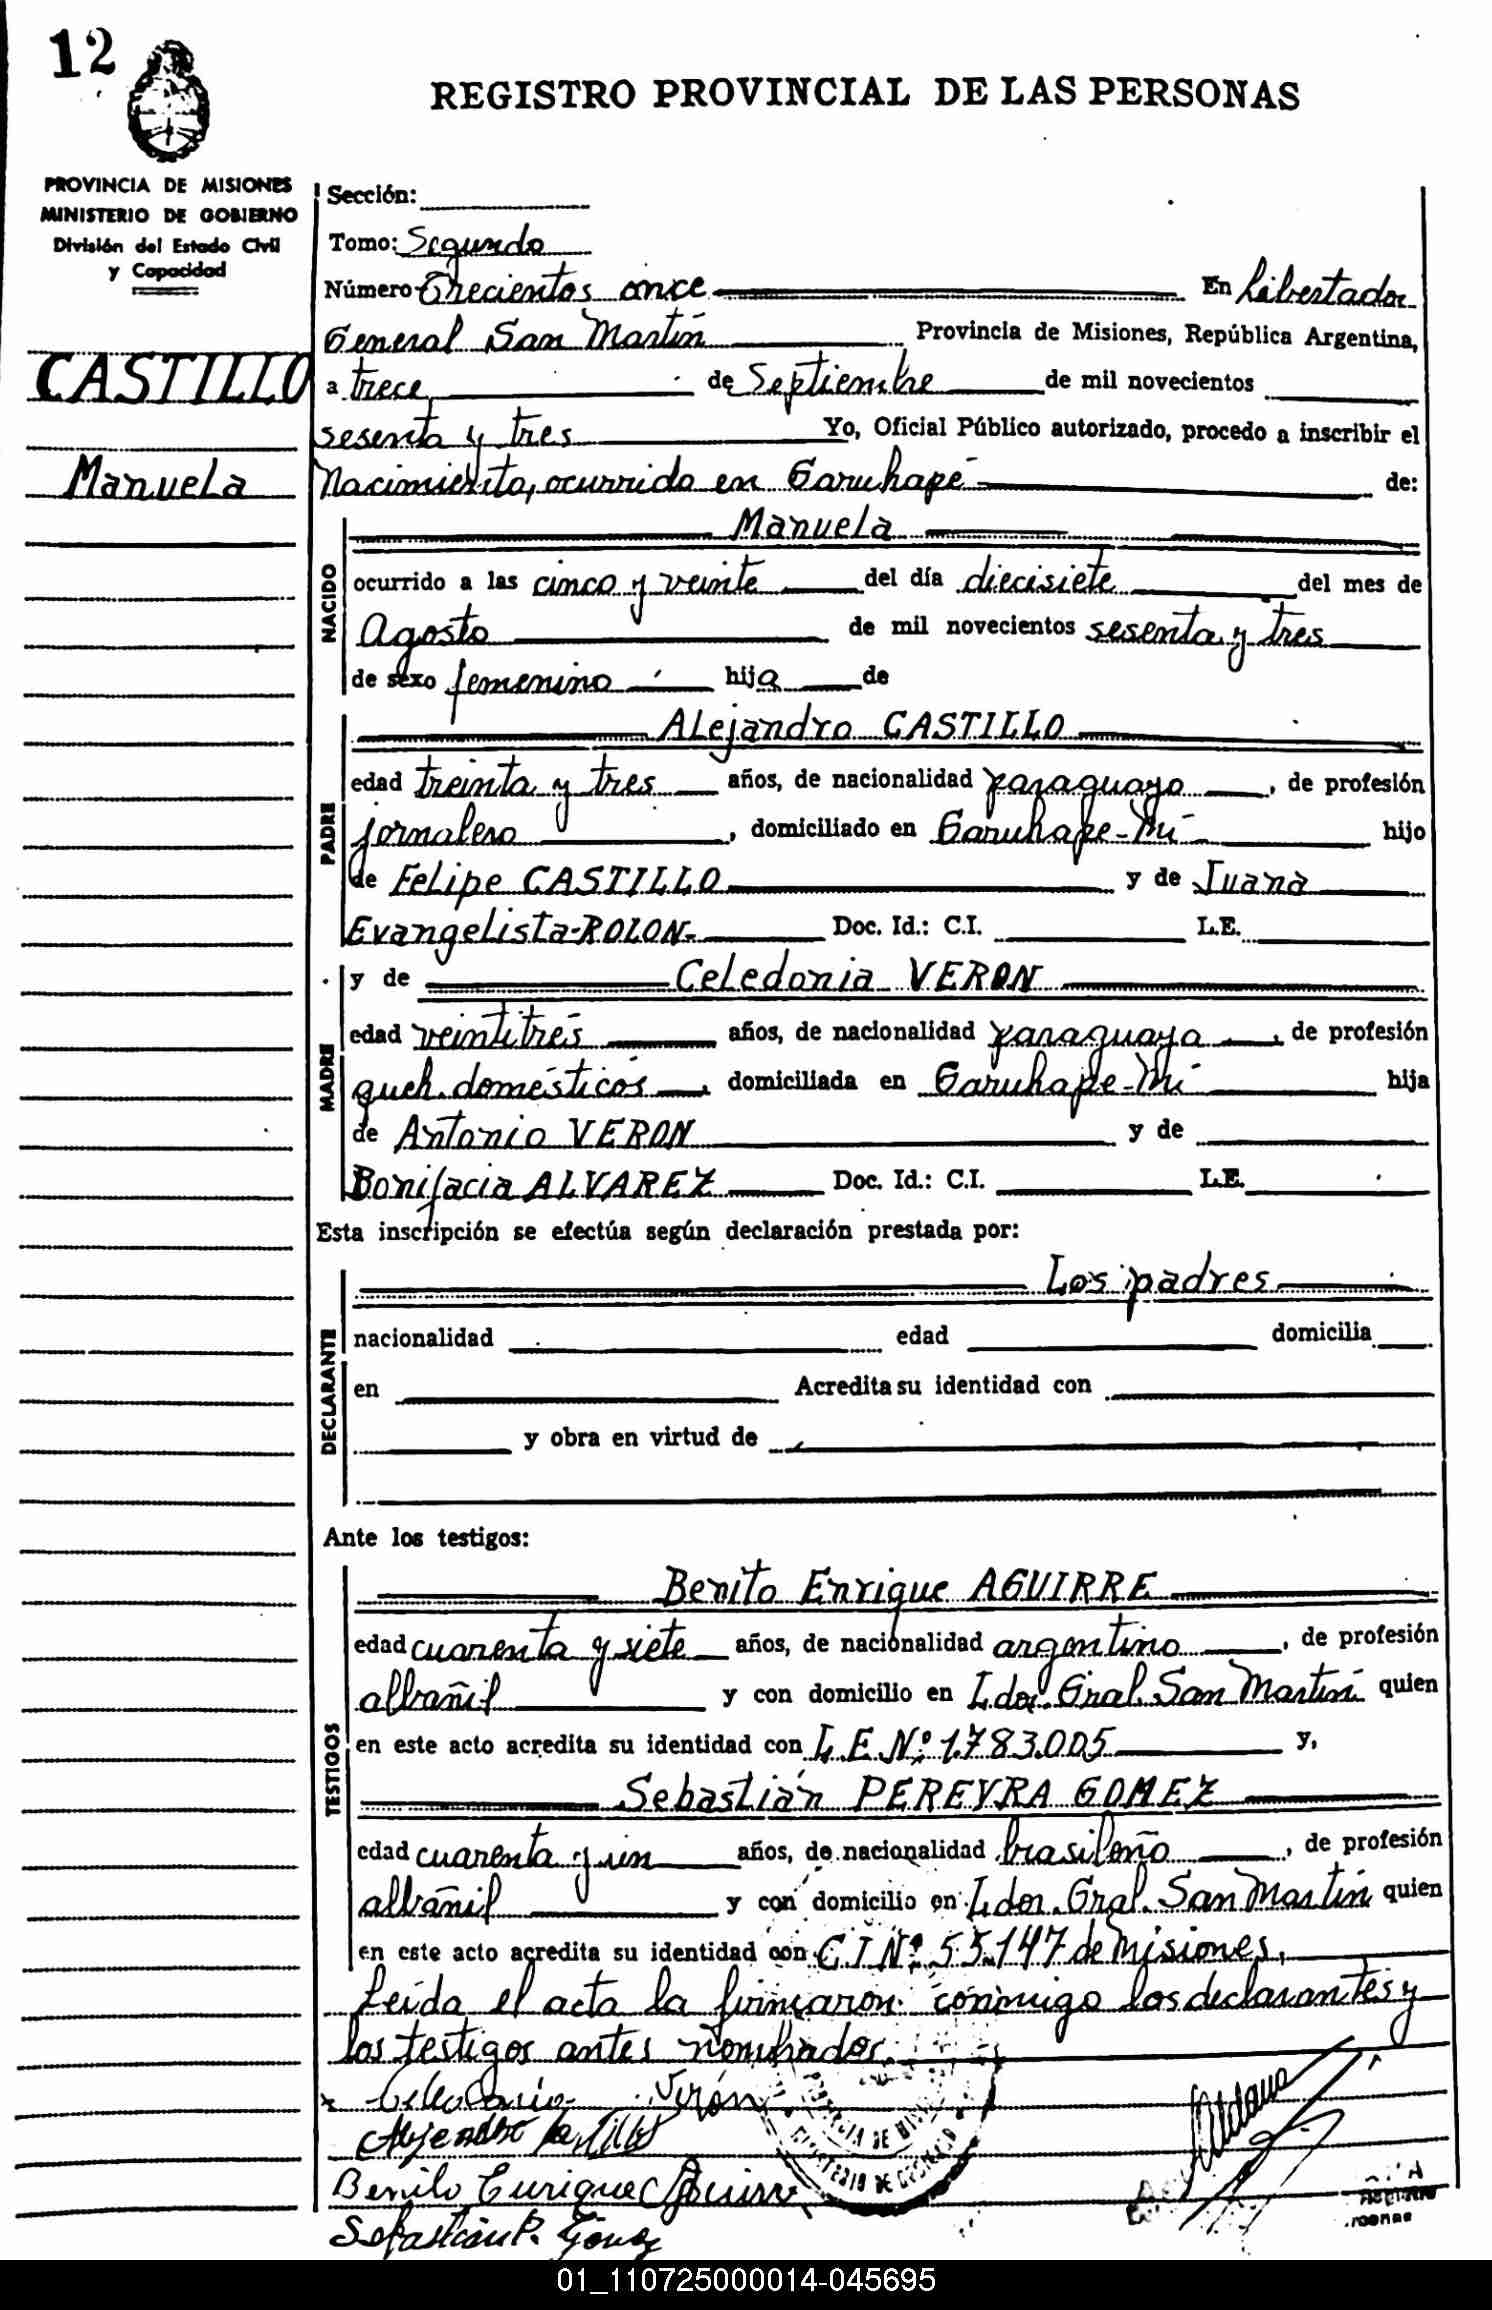 12
REGISTRO PROVINCIAL DE LAS PERSONAS
PROVINCIA DE MISIONES
MINISTERIO DE GOBIERNO
División del Estado Civil
y Capacidad
CASTILLO
Manuela
Sección:
Tomo: Segundo
Número Trecientos once En Libertador
General San Martín Provincia de Misiones, República Argentina,
a trece de Septiembre de mil novecientos
sesenta y tres Yo, Oficial Público autorizado, procedo a inscribir el
Nacimiento, ocurrido en Garuhapé de:
NACIDO
Manuela
ocurrido a las cinco y veinte del día diecisiete del mes de
Agosto de mil novecientos sesenta y tres
de sexo femenino hija de
PADRE
Alejandro CASTILLO
edad treinta y tres años, de nacionalidad paraguayo, de profesión
jornalero, domiciliado en Garuhape-Mí hijo
de Felipe CASTILLO y de Juana
Evangelista-ROLON- Doc. Id.: C.I. L.E.
MADRE
y de Celedonia VERON
edad veintitrés años, de nacionalidad paraguaya, de profesión
queh. domésticos, domiciliada en Garuhape-Mí hija
de Antonio VERON y de
Bonifacia ALVAREZ Doc. Id.: C.I. L.E.
Esta inscripción se efectúa según declaración prestada por:
DECLARANTE
Los padres
nacionalidad edad domicilia
en Acredita su identidad con
y obra en virtud de
Ante los testigos:
TESTIGOS
Benito Enrique AGUIRRE
edad cuarenta y siete años, de nacionalidad argentino, de profesión
albañil y con domicilio en Ldor. Gral. San Martín quien
en este acto acredita su identidad con L.E.Nº 1.783.005 y,
Sebastián PEREYRA GOMEZ
edad cuarenta y un años, de nacionalidad brasileño, de profesión
albañil y con domicilio en Ldor. Gral. San Martín quien
en este acto acredita su identidad con C.I.Nº 55.147 de Misiones,
Leída el acta la firmaron conmigo los declarantes y
los testigos antes nombrados.
x Celedonia Verón
Alejandro Castillo
Benito Enrique Aguirre
Sebastian P. Gomez
01_110725000014-045695